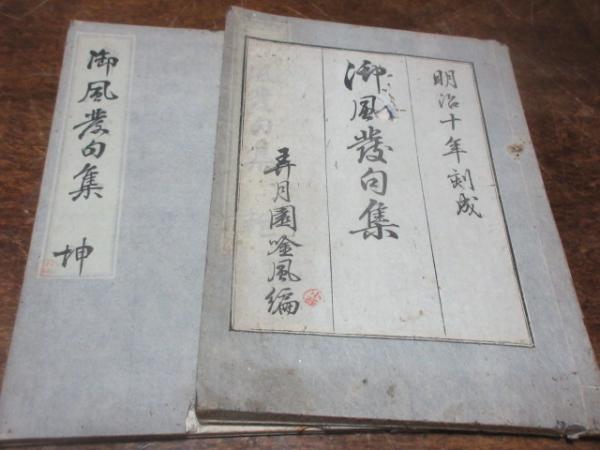 明治十年刻成
御風發句集
弄月園唫風編
御風發句集
坤